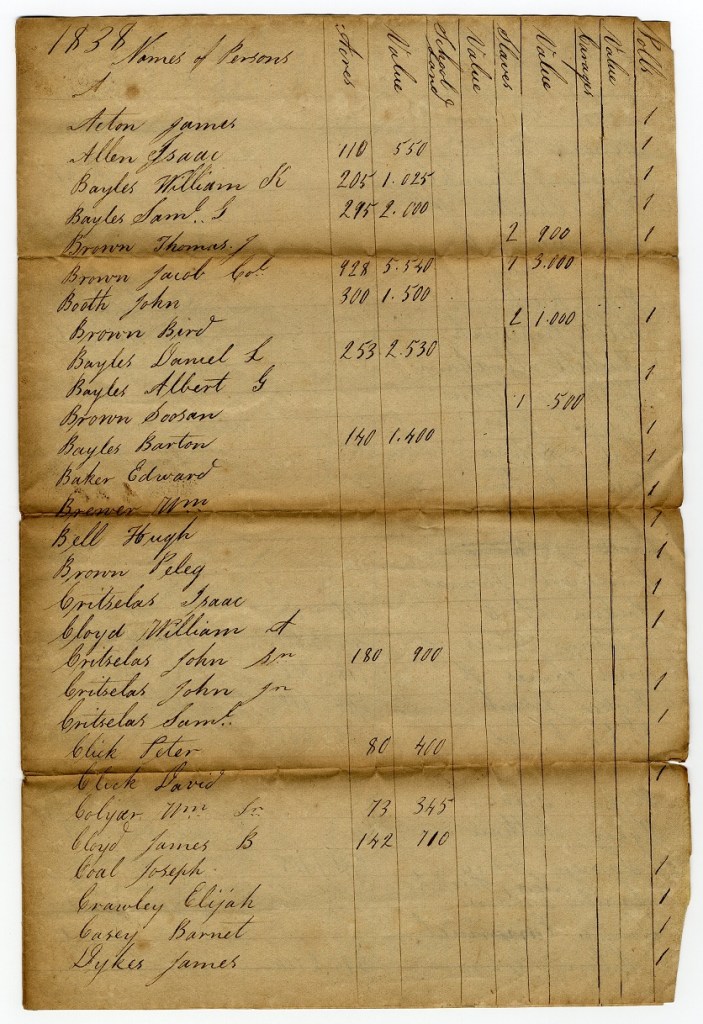 1838 Names of Persons Acres Value School Land Value Slaves Value Carages Value Polls
A
Acton James 1
Allen Isaac 110 550 1
Bayles William K 205 1.025 1
Bayles Saml. G 295 2.000 1
Brown Thomas J 2 900 1
Brown Jacob Col. 928 5.540 1 3.000
Booth John 300 1.500
Brown Bird 2 1.000 1
Bayles Daniel L 253 2.530
Bayles Albert G 1
Brown Soosan 1 .500
Bayles Barton 140 1.400 1
Baker Edward 1
Brewer Wm 1
Bell Hugh 1
Brown Peleg 1
Critselas Isaac 1
Cloyd William A 1
Critselas John Sr 180 900
Critselas John Jr 1
Critselas Saml. 1
Click Peter 80 400
Click David 1
Colyar Wm Sr 73 345
Cloyd James B 142 710
Coal Joseph 1
Crawley Elijah 1
Casey Barnet 1
Dykes James 1